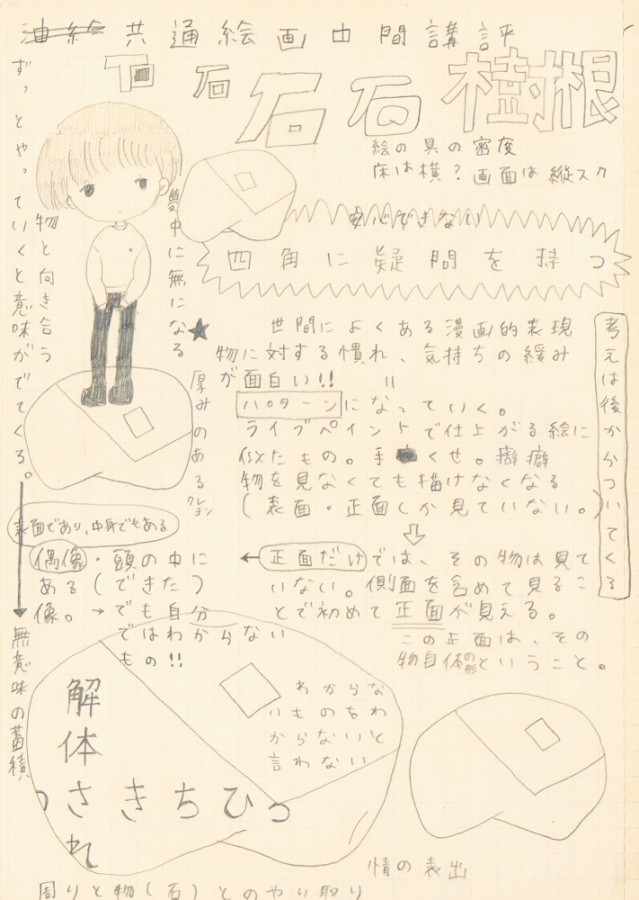 油絵 共通絵画中間講評
石 石 石 石 樹根
絵の具の密度
床は横? 画面は縦スク
安心できない
四角に疑問を持つ
ずっとやっていくと意味がでてくる。
無意味の蓄積
物と向き合う
夢中に無になる
★
厚みのある
クレヨン
世間によくある漫画的表現
物に対する慣れ、気持ちの緩み
が面白い!! 〃
パターンになっていく。
ライブペイントで仕上がる絵に
似たもの。手くせ。癖癖
物を見なくても描けなくなる
(表面・正面しか見ていない。)
⇩
考えは後からついてくる
表面であり、中身でもある
偶像・頭の中に
ある(できた)
像。→でも自分
ではわからない
もの!!
← 正面だけでは、その物は見て
いない。側面を含めて見るこ
とで初めて正面が見える。
この正面は、その
物自体の形ということ。
解体
され
っさきちひっ
わからな
いものをわ
からないと
言わない
情の表出
周りと物(石)とのやり取り